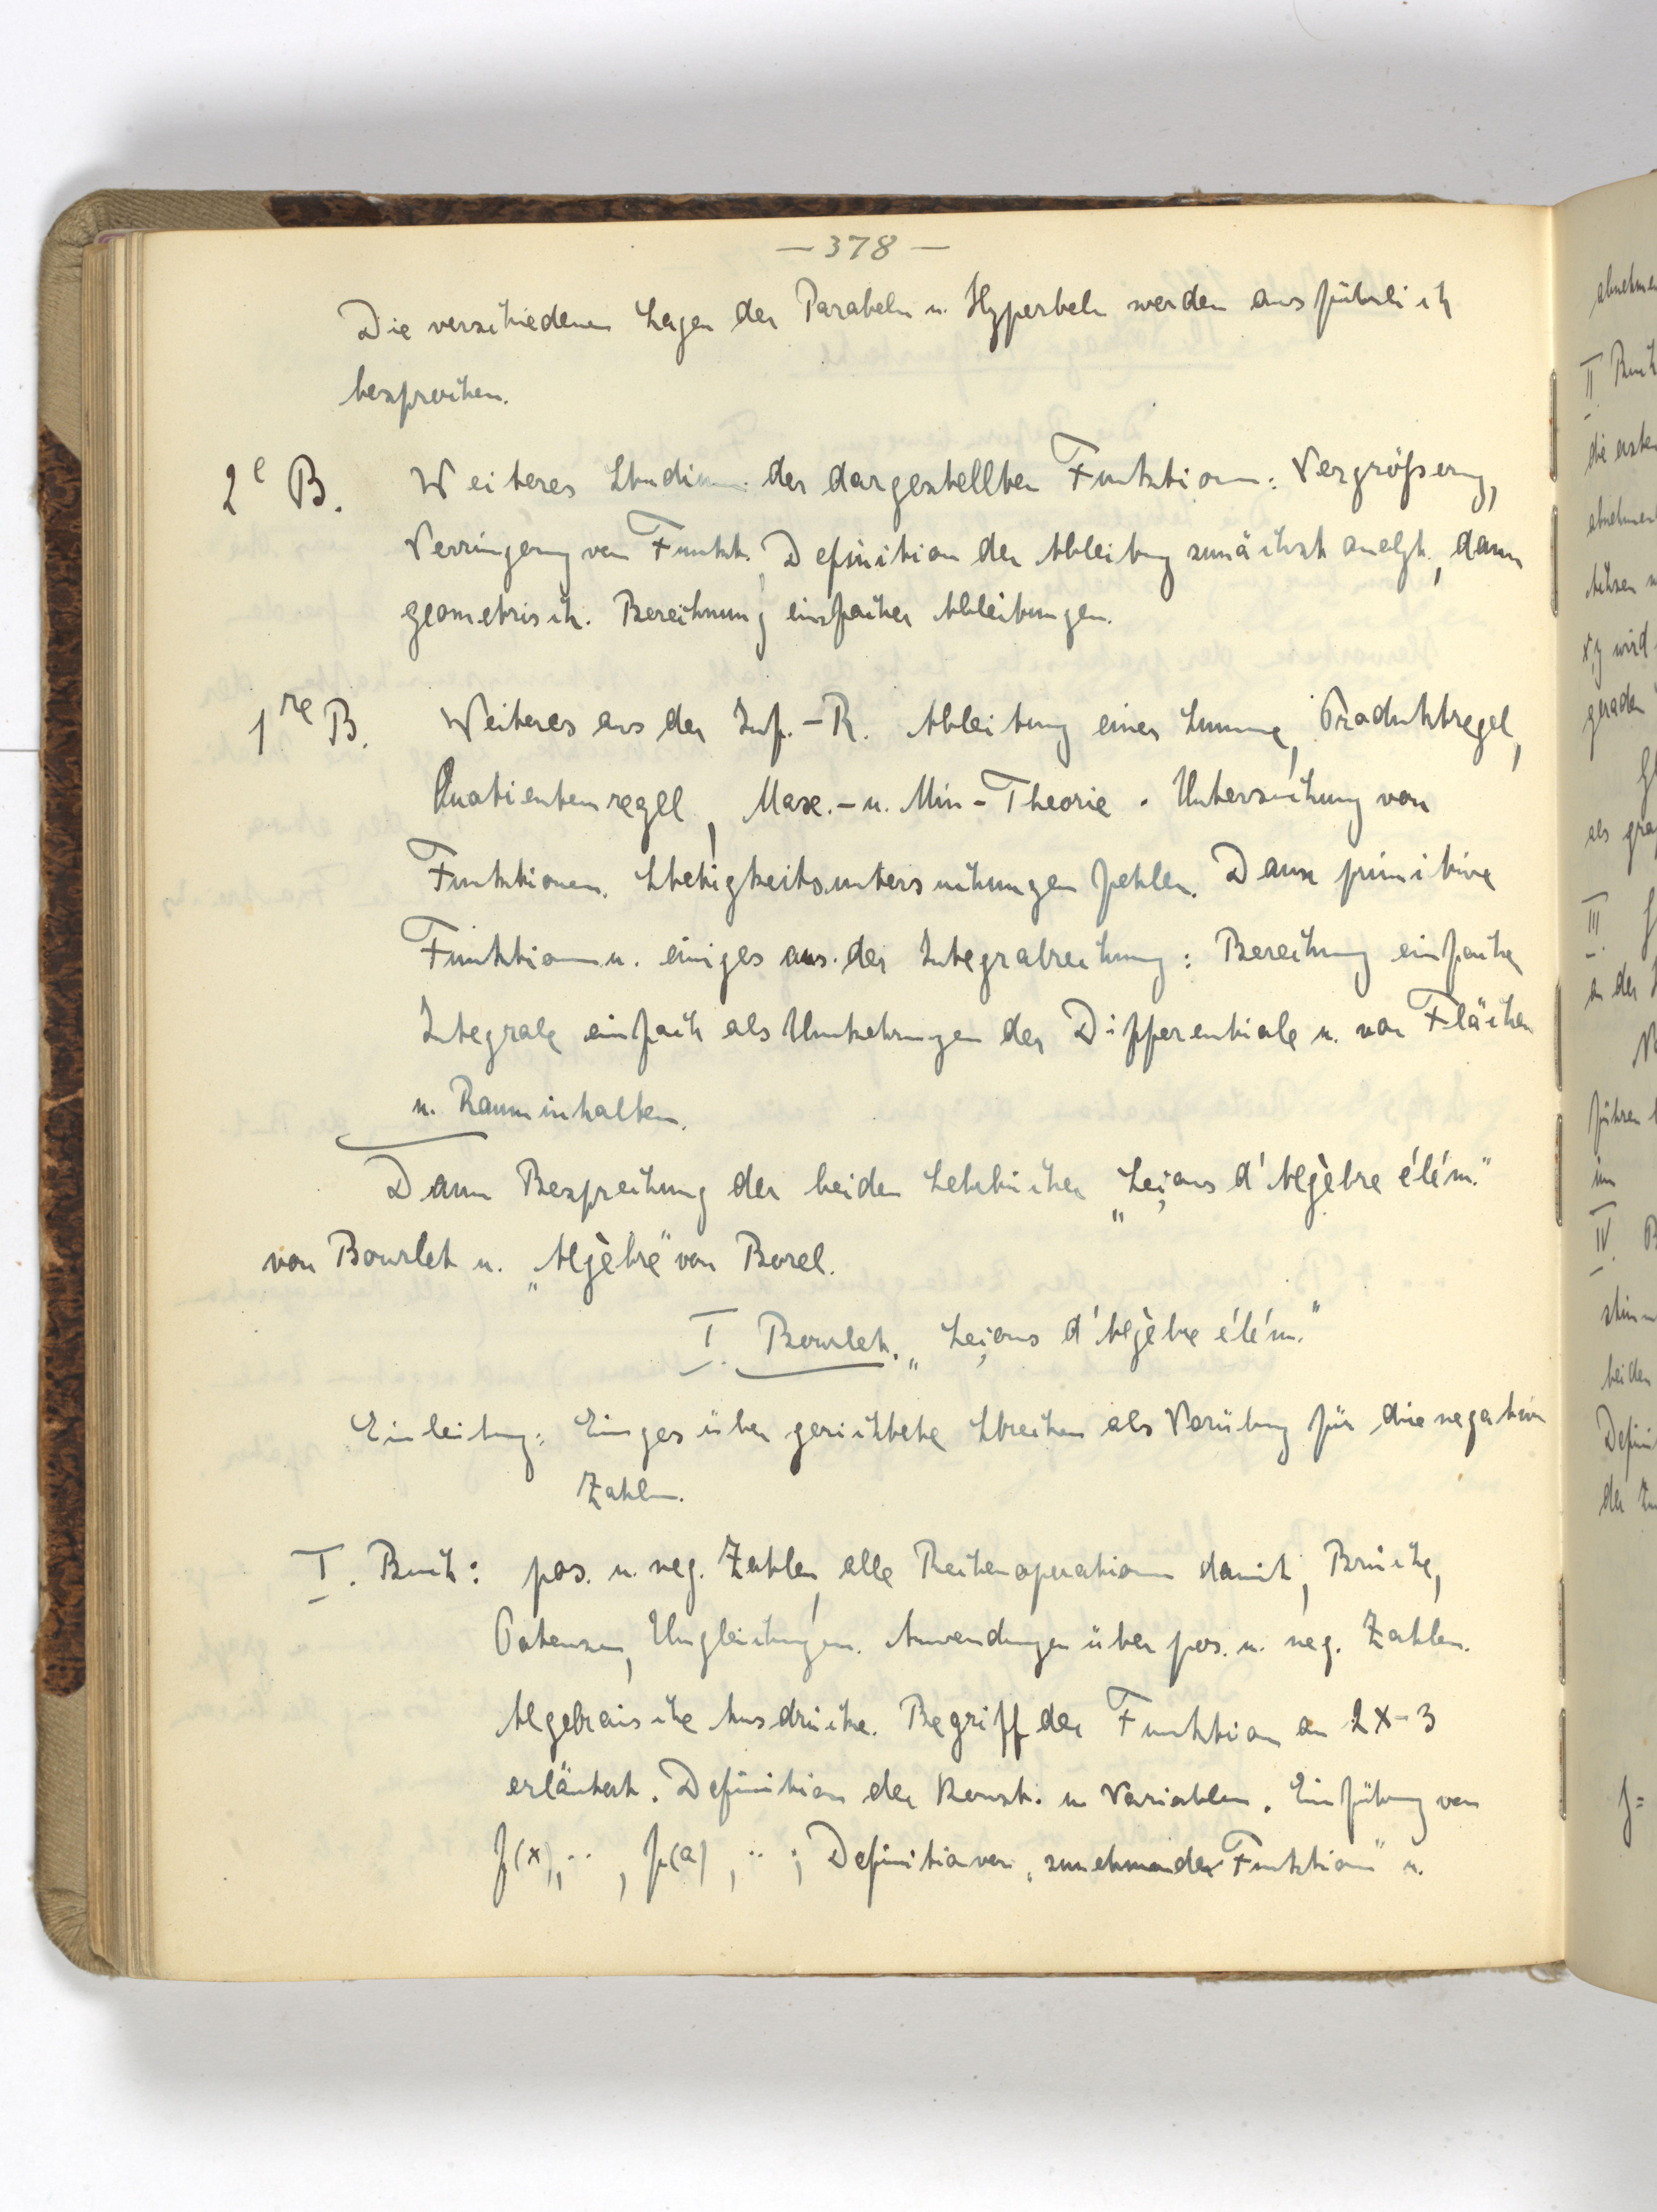 — 378 —
Die verschiedenen Lagen der Parabeln u. Hyperbeln werden ausführlich
besprochen.
2e B. Weiteres Studium der dargestellten Funktionen: Vergrößerung,
Verringerung von Funkt., Definition der Ableitung zunächst analyt., dann
geometrisch. Berechnung einfacher Ableitungen.
1re B. Weiteres aus der Inf.-R. Ableitung einer Summe, Produktregel,
Quotientenregel, Max.- u. Min-Theorie. Untersuchung von
Funktionen. Stetigkeitsuntersuchungen fehlen. Dann primitive
Funktionen u. einiges aus der Integralrechnung: Berechnung einfacher
Integrale einfach als Umkehrungen der Differentiale u. von Flächen
u. Rauminhalten.
Dann Besprechung der beiden Lehrbücher „Leçons d'Algèbre élém."
von Bourlet u. „Algèbre" von Borel.
I. Bourlet. „Leçons d'Algèbre élém."
Einleitung: Einiges über gerichtete Strecken als Vorübung für die negativen
Zahlen.
I. Buch: pos. u. neg. Zahlen, alle Rechenoperationen damit, Brüche,
Potenzen, Ungleichungen. Anwendungen über pos. u. neg. Zahlen.
Algebraische Ausdrücke. Begriff der Funktion an 2x-3
erläutert. Definition der Konst. u. Variablen. Einführung von
f(x), .. , f(a), .. ; Definition von „zunehmender Funktion" u.
abnehmen
II Buch
die ersten
x,y wird
geraden
als gra
III.
an der
führen
im
IV.
beiden
Defini